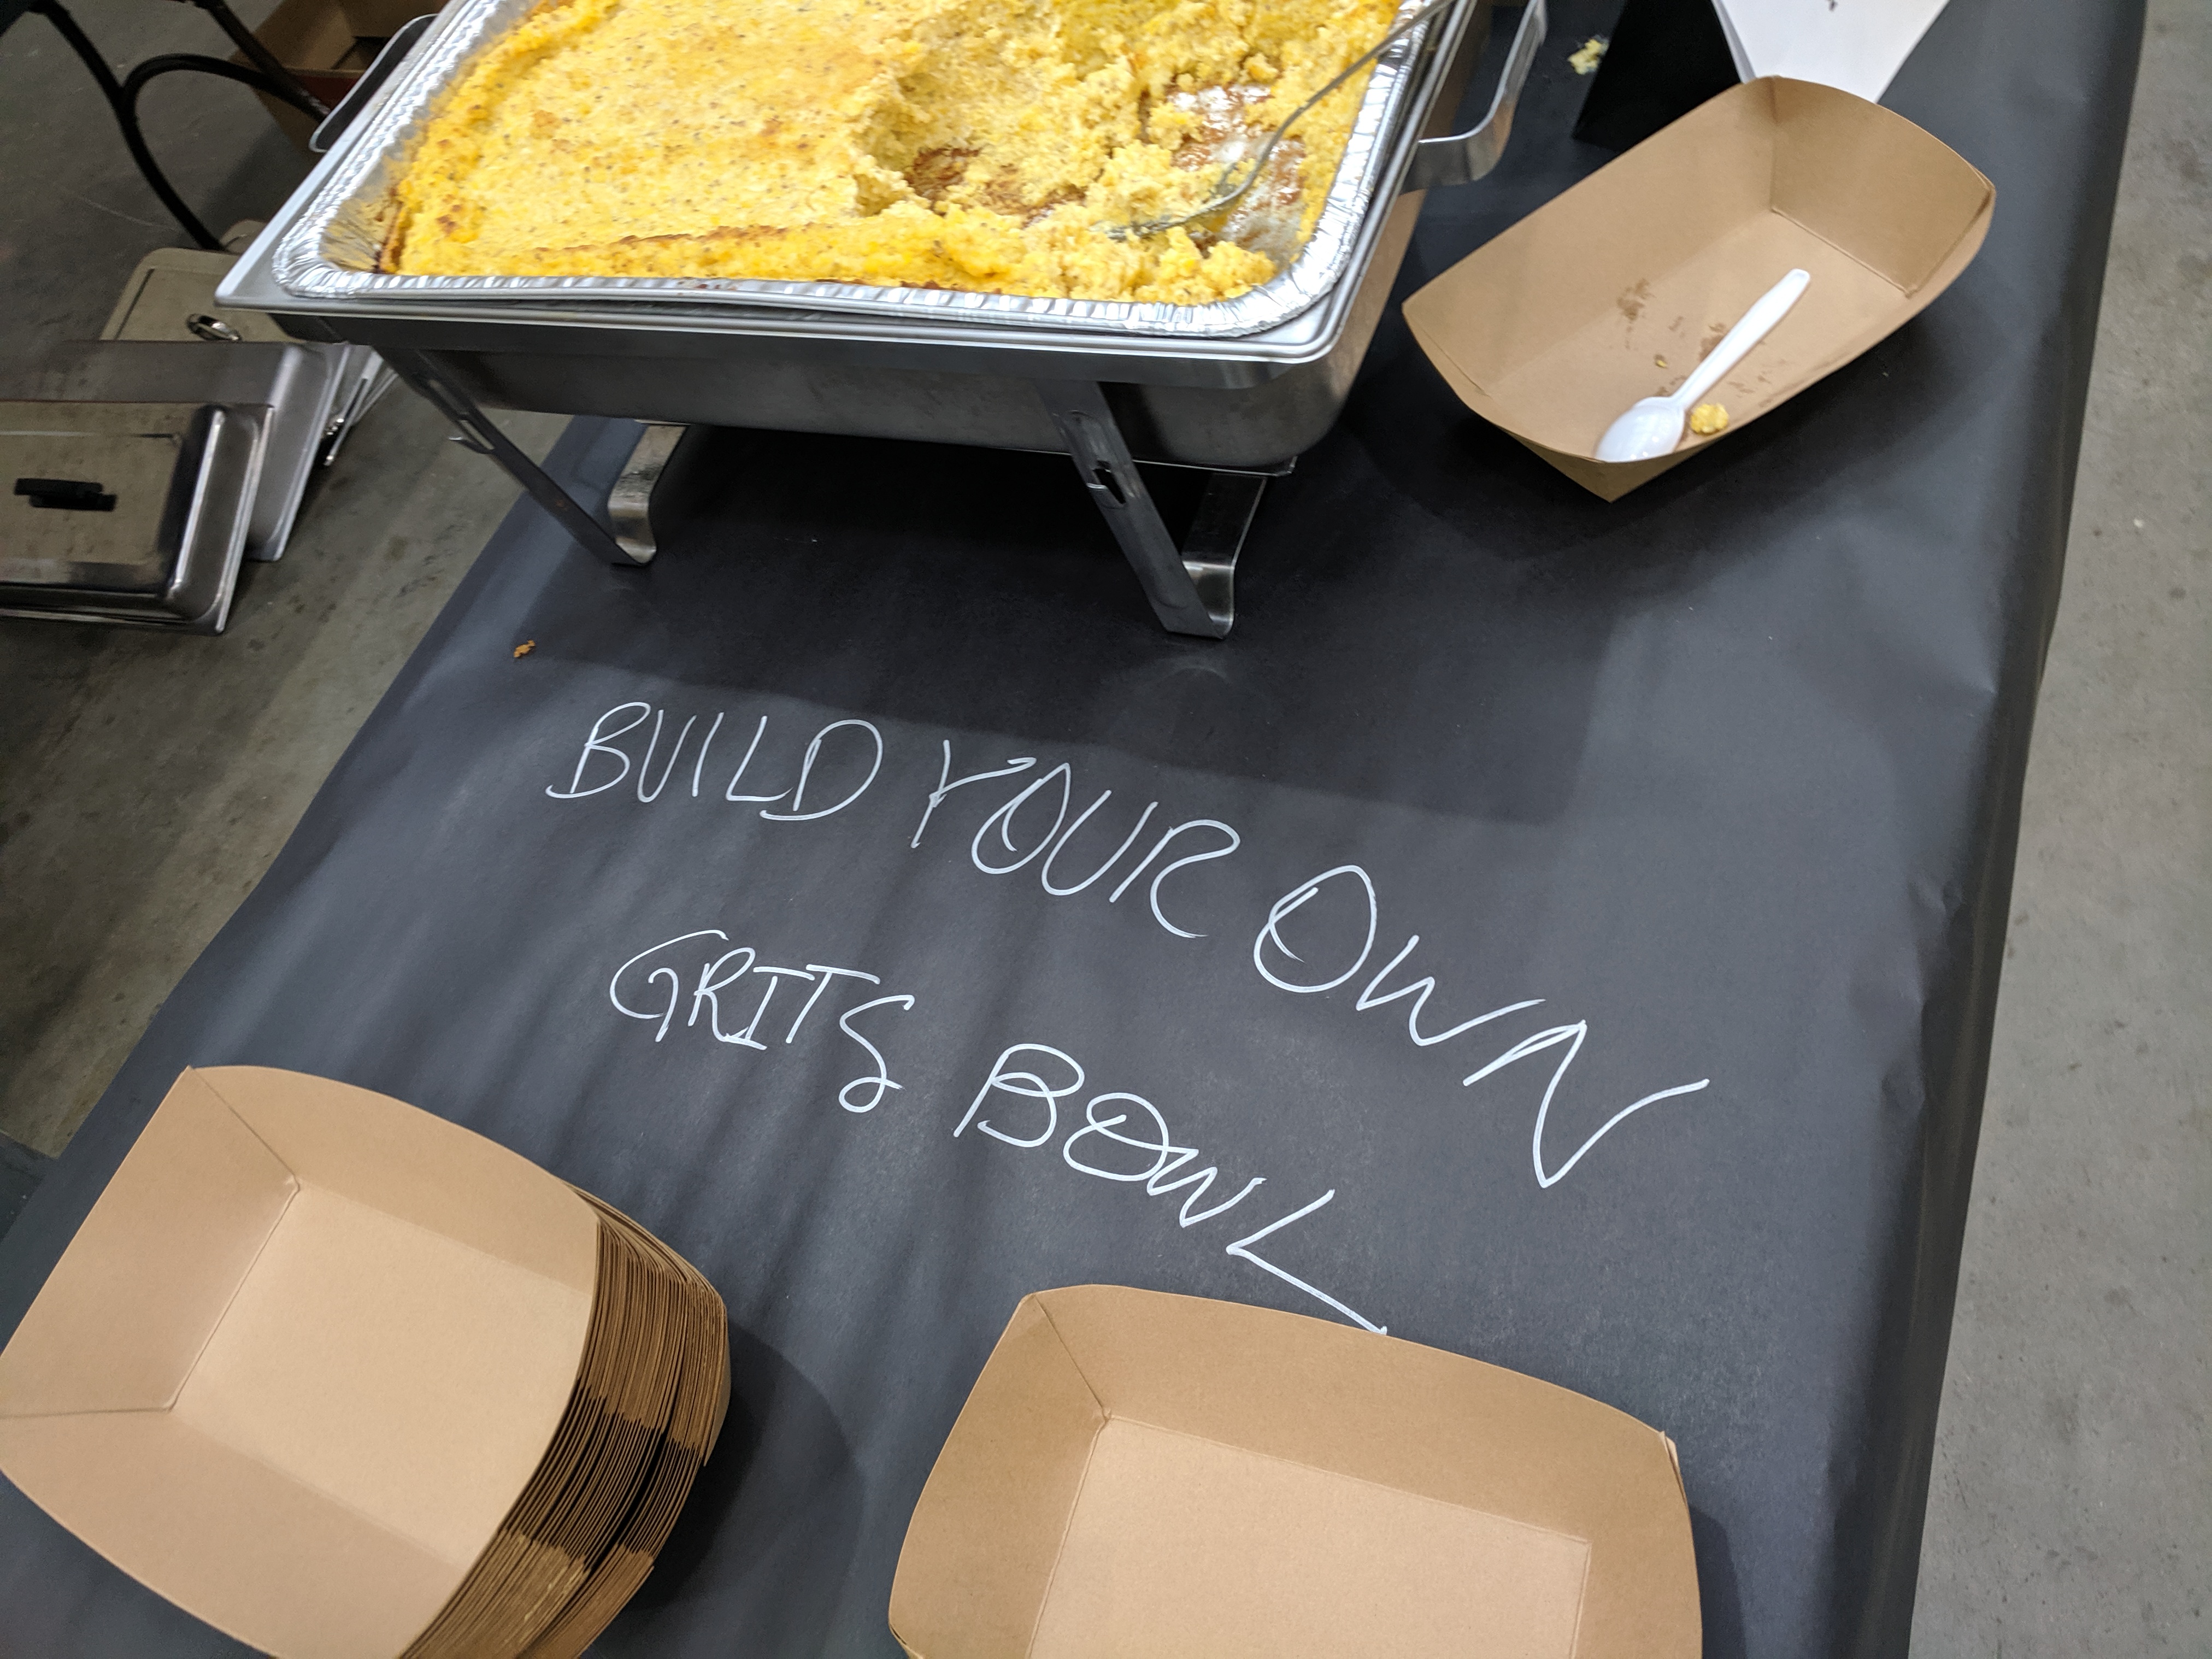 BUILD YOUR OWN
GRITS BOWL